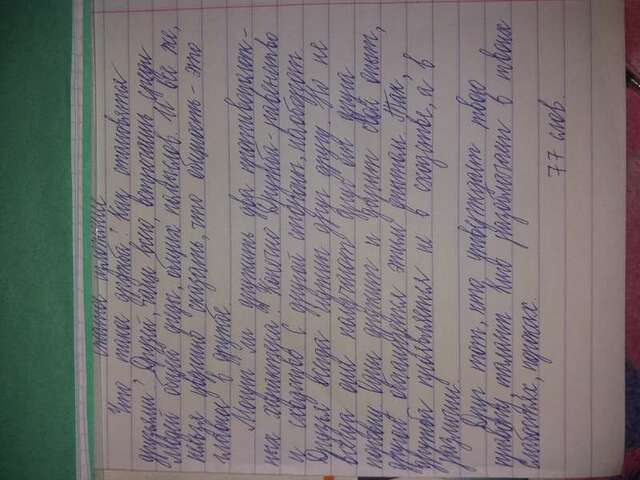 сжатое изложение
Что такое дружба? Как становятся
друзьями? Друзей, чаще всего, встречаешь среди
людей общей среды, общих помыслов. И все же,
нельзя уверенно сказать, что общность - это
главное в дружбе.
Могут ли дружить два противополож-
ных характера? Конечно Дружба - равенство
и сходство С другой стороны, наоборот
Друзья всегда нужны друг другу. Но не
всегда они получают друг от друга
поровну. Один дружит и дарит свой опыт,
другой обогащается этим опытом. Так,
дружба проявляется не в сходстве, а в
различии.
Друг тот, кто утверждает твою
правоту, талант Кто разоблачает в твоих
слабостях, пороках.
77 слов.